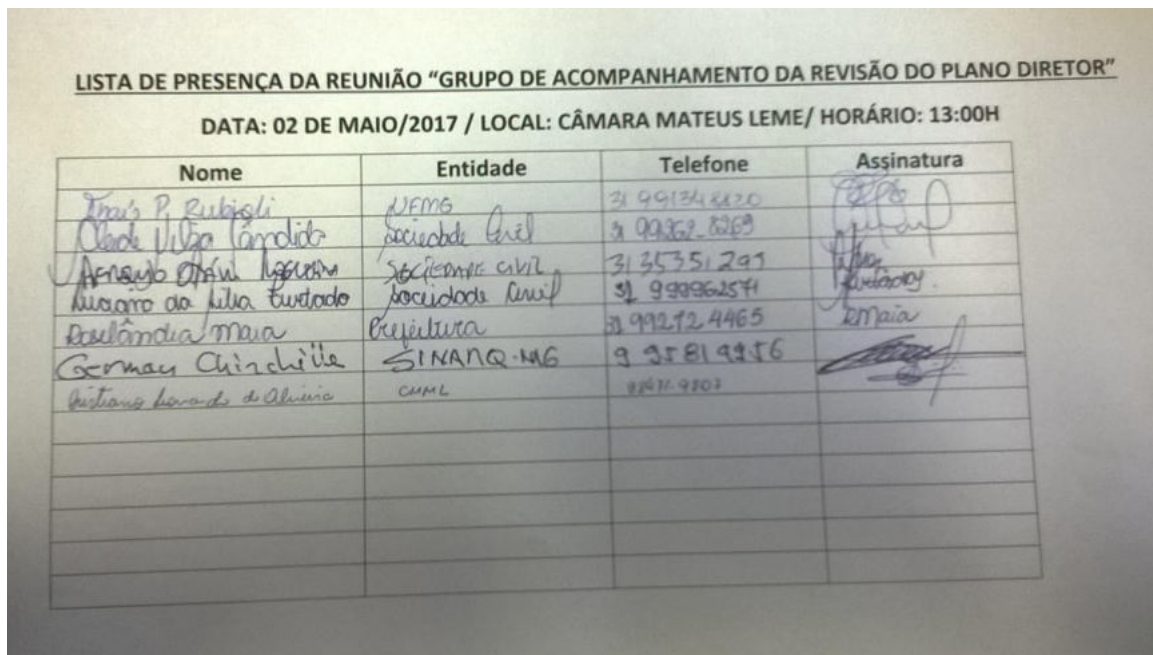 LISTA DE PRESENÇA DA REUNIÃO “GRUPO DE ACOMPANHAMENTO DA REVISÃO DO PLANO DIRETOR”
DATA: 02 DE MAIO/2017 / LOCAL: CÂMARA MATEUS LEME/ HORÁRIO: 13:00H
Nome Entidade Telefone Assinatura
Thaís P. Rubioli UFMG
Cleide Cândido Sociedade Civil 31
Sociedade civil 31 35351293
Luciano da Silva Furtado Sociedade Civil 31 999962571
Roselândia Maia Prefeitura 31 99272 4465 RMaia
German Chinchilla SINARQ-MG 9 95819956
Cristiano de Oliveira CMML